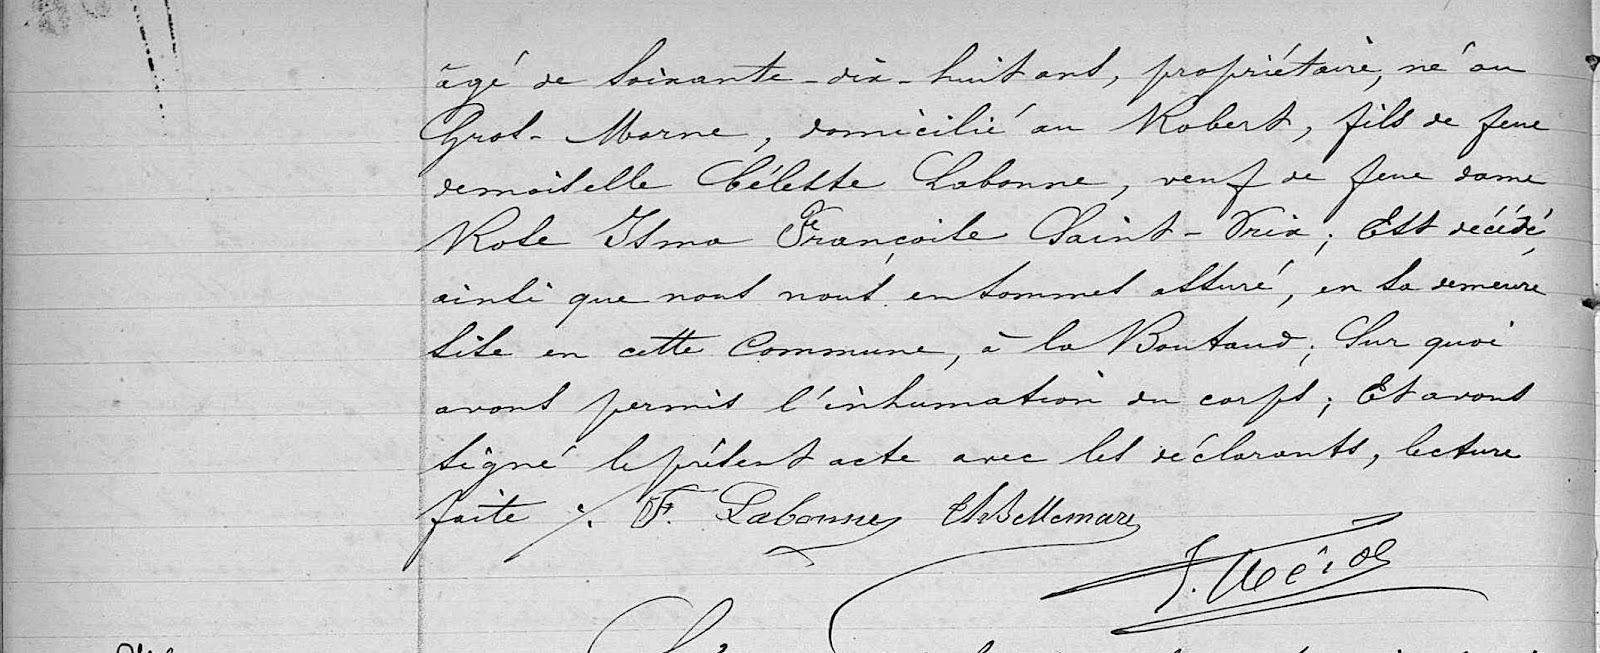 âgé de soixante-dix-huit ans, propriétaire, né au
Gros-Morne, domicilié au Robert, fils de feue
demoiselle Céleste Labonne, veuf de feue dame
Rose Isma Françoise Saint-Prix; Est décédé,
ainsi que nous nous en sommes assuré, en sa demeure
sise en cette Commune, à la Boutaud; Sur quoi
avons permis l'inhumation du corps; Et avons
signé le présent acte avec les déclarants, lecture
faite ./. F. Labonne Bellemare